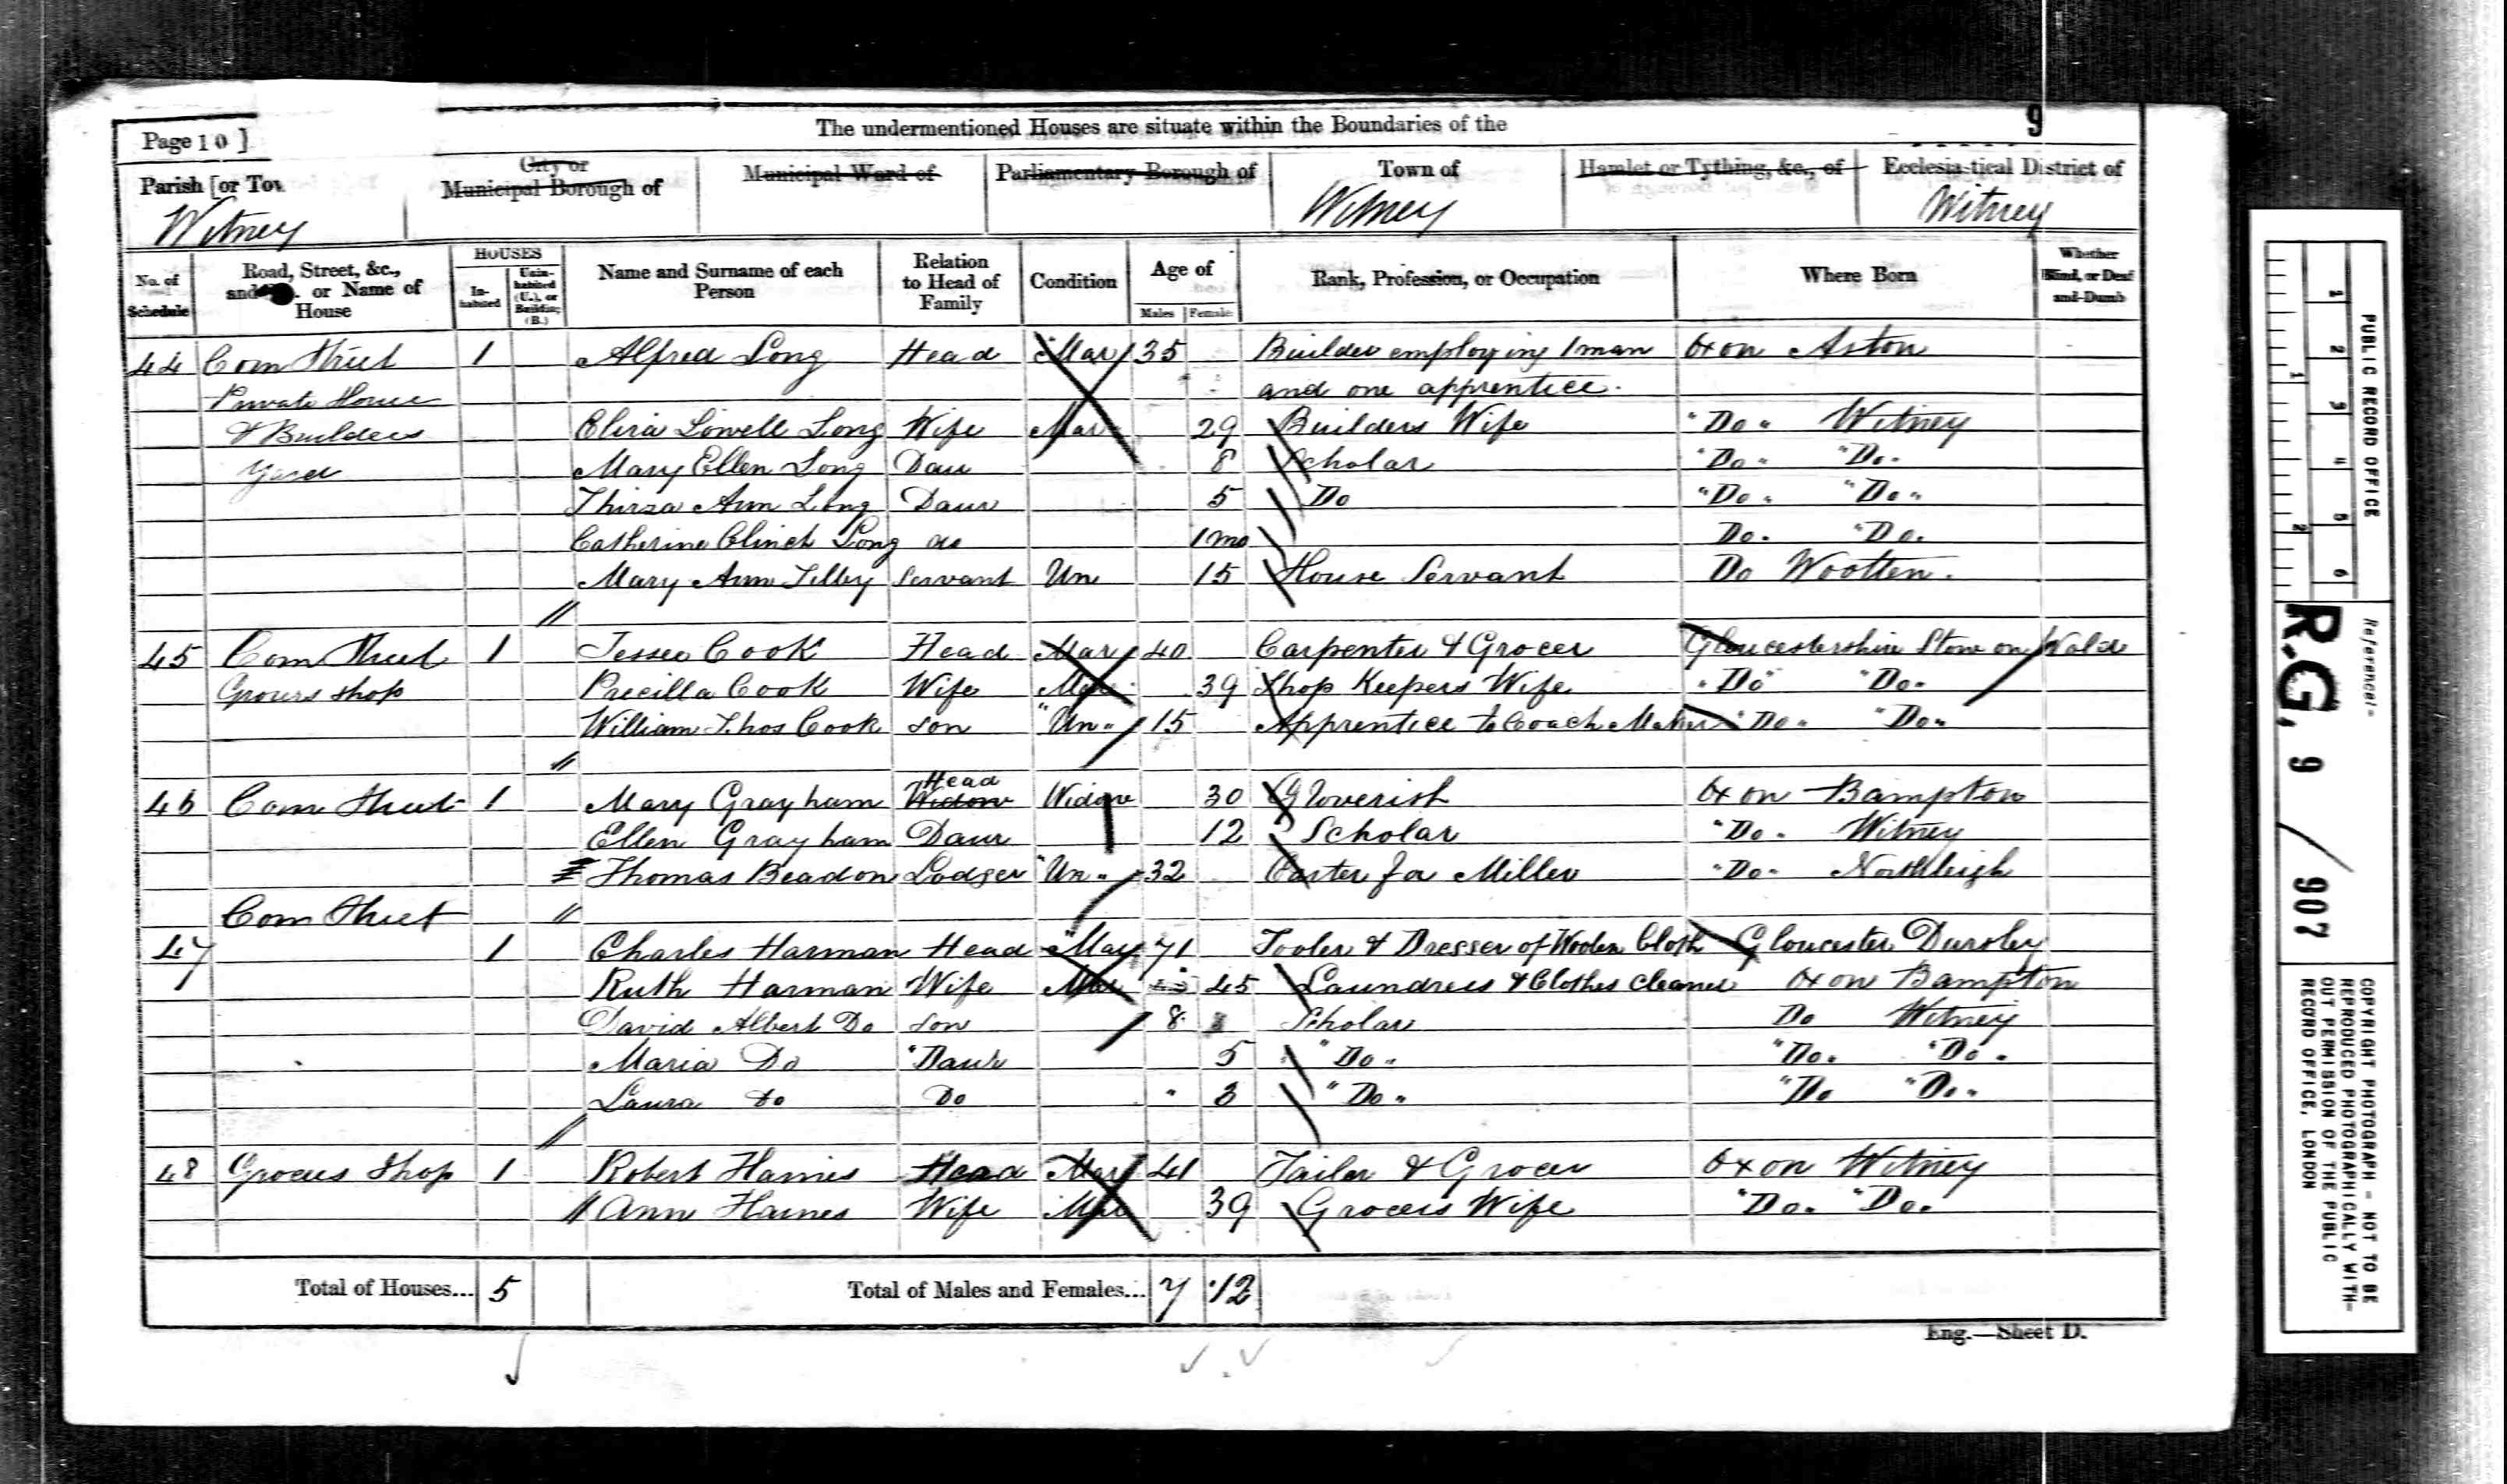 The undermentioned Houses are situate within the Boundaries of the
9
Page 10]
Parish [or Tow
Witney
City or
Municipal Borough of
Municipal Ward of
Parliamentary Borough of
Town of
Witney
Hamlet or Tything, &c., of
Ecclesiastical District of
Witney
No. of Schedule
Road, Street, &c., and . or Name of House
HOUSES
In-habited
Unin-habited (U.), or Building (B.)
Name and Surname of each Person
Relation to Head of Family
Condition
Age of
Males Females
Rank, Profession, or Occupation
Where Born
Whether Blind, or Deaf-and-Dumb
44 Corn Street 1 Alfred Long Head Mar 35 Builder employing 1 man Oxon Aston
Private House and one apprentice.
& Builders Eliza Lowell Long Wife Mar 29 Builders Wife "Do" Witney
Yard Mary Ellen Long Daur 8 Scholar "Do" "Do"
Thirza Ann Long Daur 5 Do "Do" "Do"
Catherine Clinch Long do 1 mo Do. "Do.
Mary Ann Servant Un 15 House Servant Do Wootten.
45 Corn Street 1 Jesse Cook Head Mar 40 Carpenter & Grocer Gloucestershire Stow on Wold
Grocers Shop Precilla Cook Wife Mar 39 Shop Keepers Wife "Do" "Do"
William Thos Cook Son "Un" 15 Apprentice to Coach Maker "Do" "Do"
Head
46 Corn Street 1 Mary Grayham Widow Widow 30 Gloverish Oxon Bampton
Ellen Grayham Daur 12 Scholar "Do. Witney
Thomas Beadon Lodger "Un" 32 Carter for Miller "Do" Northleigh
Corn Street
47 1 Charles Harman Head Mar 71 Tooler & Dresser of Woolen Cloth Gloucester Dursley
Ruth Harman Wife Mar 45 Laundress & Clothes Cleaner Oxon Bampton
David Albert Do Son 8 Scholar Do Witney
Maria Do "Daur 5 "Do" "Do. "Do.
Laura Do Do " 3 "Do" "Do "Do"
48 Grocers Shop 1 Robert Haines Head Mar 41 Tailor & Grocer Oxon Witney
Ann Haines Wife Mar 39 Grocers Wife "Do. "Do.
Total of Houses... 5 Total of Males and Females... 7 12
Eng.—Sheet D.
1 2 3 4 5 6
1 2
PUBLIC RECORD OFFICE
Reference:-
R.G. 9 / 907
COPYRIGHT PHOTOGRAPH - NOT TO BE
REPRODUCED PHOTOGRAPHICALLY WITH-
OUT PERMISSION OF THE PUBLIC
RECORD OFFICE, LONDON